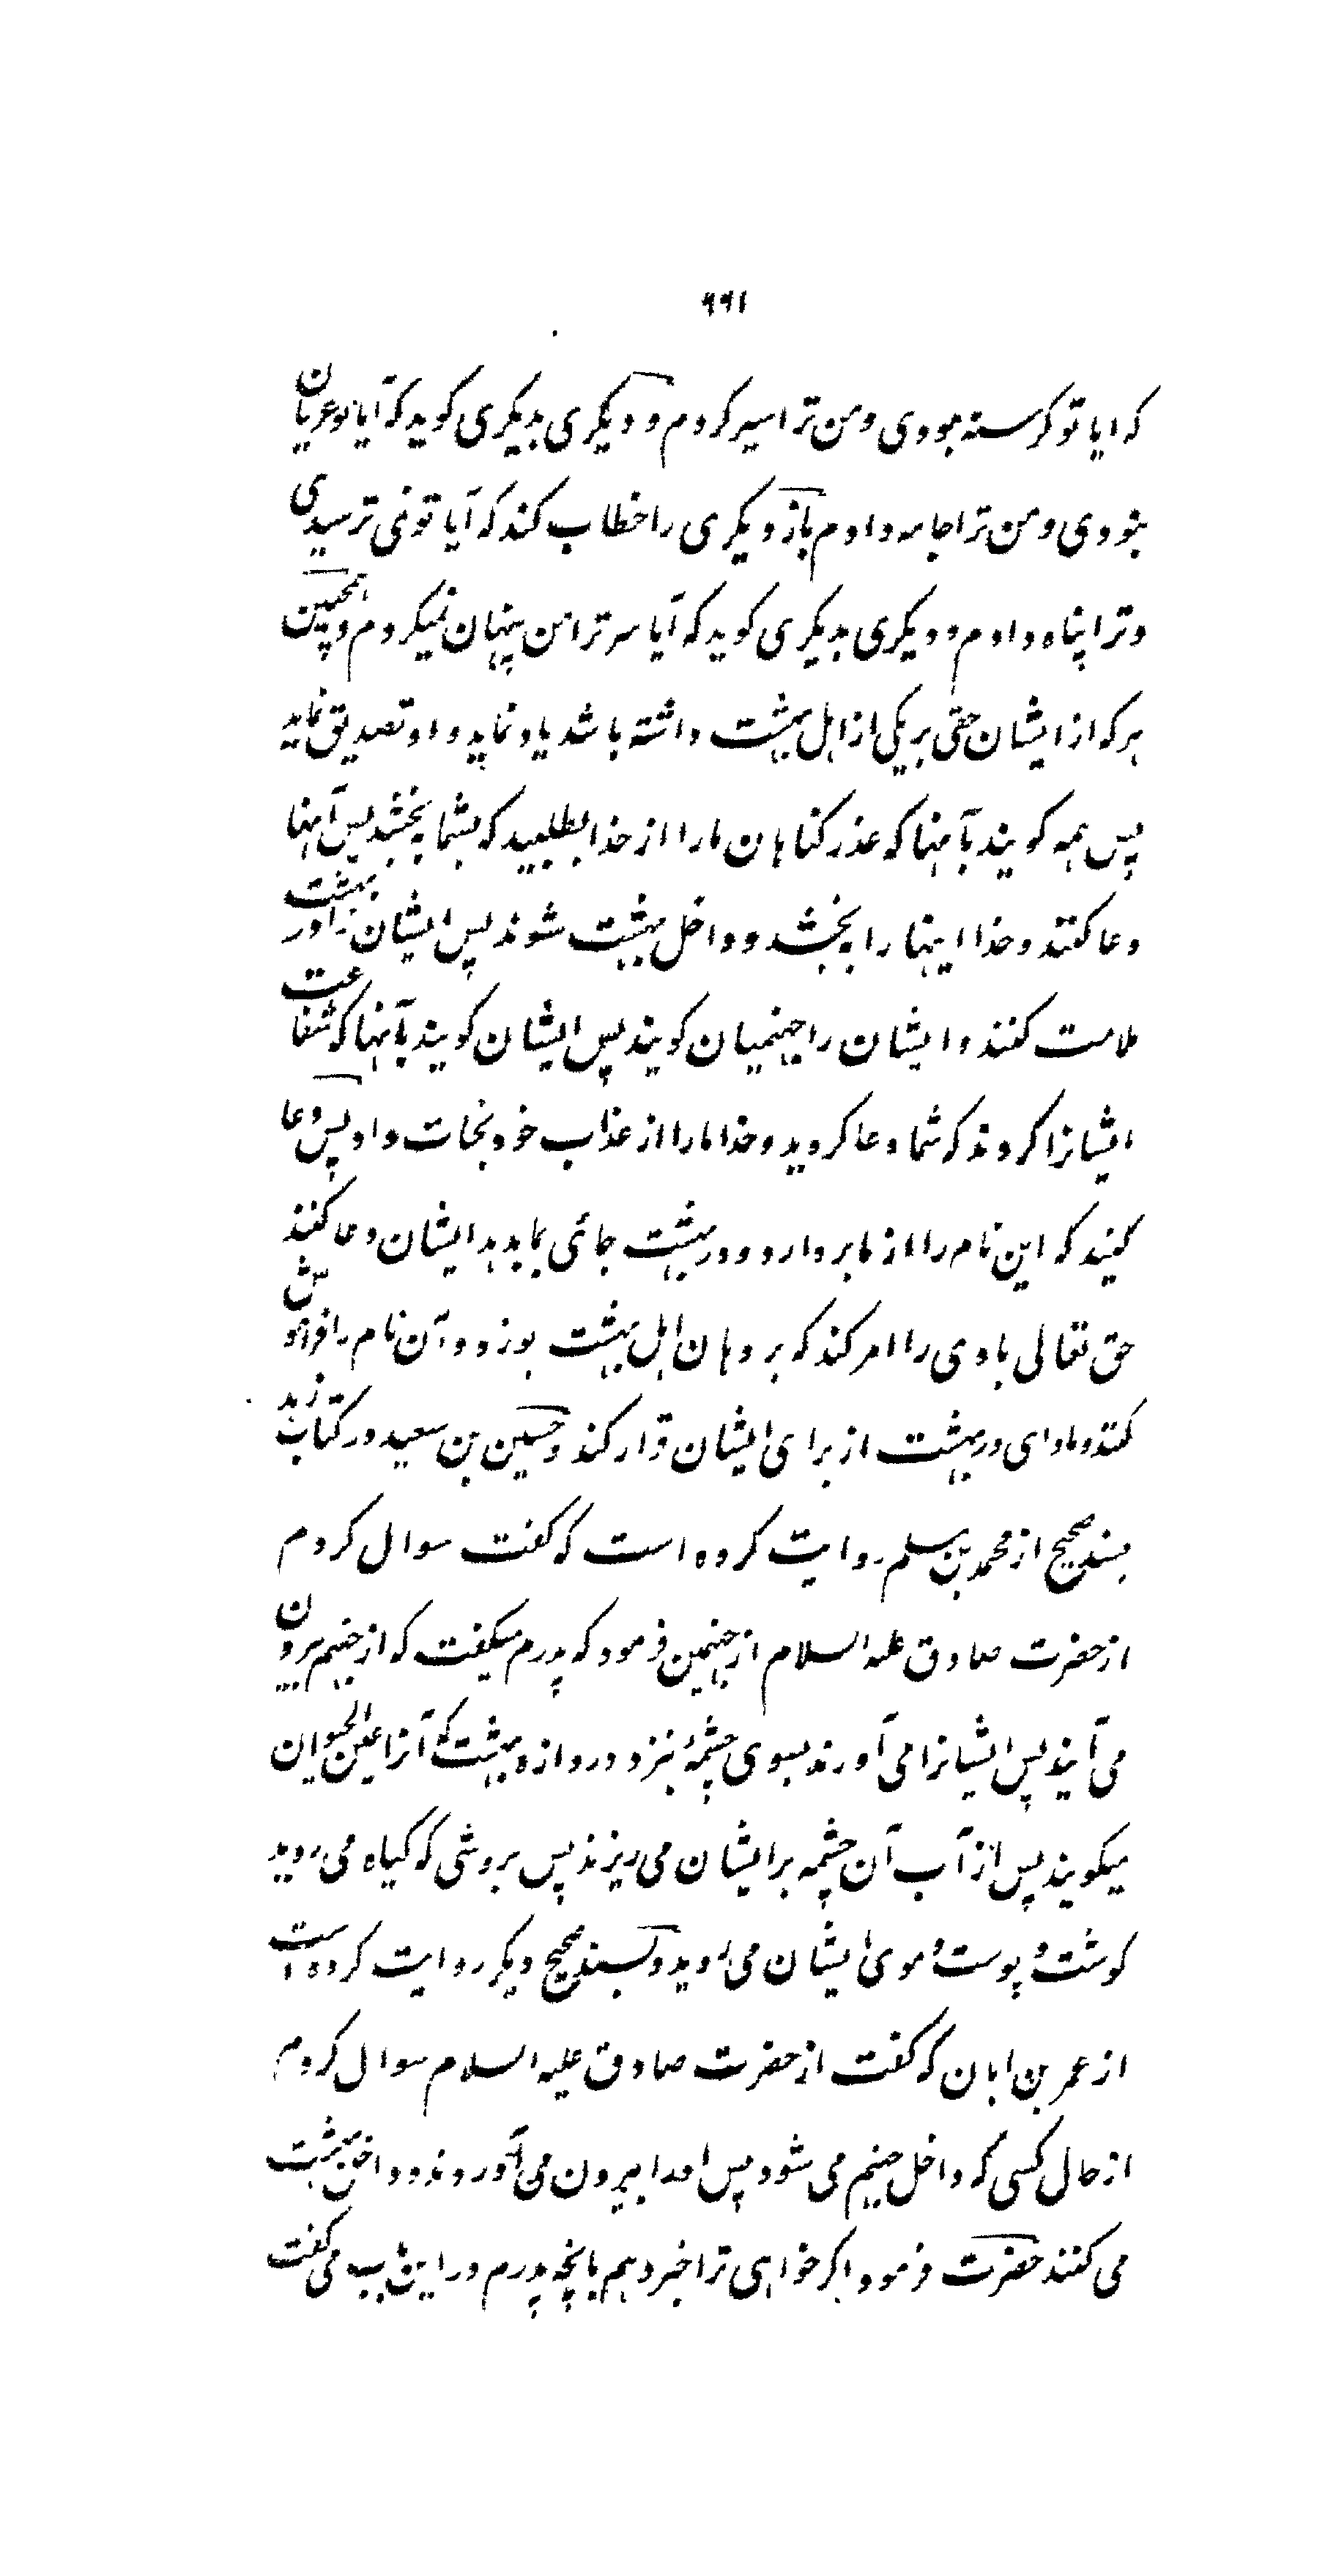 ۶۶۱
که ایا تو کرسنه نبودی و من ترا سیر کردم و دیکری بدیکری کوید که آیا تو عریان
نبودی و من ترا جامه دادم باز دیکری را خطاب کند که آیا تو نمی ترسیدی
و ترا پناه دادم و دیکری بدیکری کوید که آیا سر ترا من پنهان نمیکردم و همچنین
هر که از ایشان حقی بر یکی از اهل بهشت داشته باشد یاد نماید و او تصدیق نماید
پس همه کویند بآنها که عذر کناهان ما را از خدا بطلبید که بشما به بخشد پس آنها
دعا کنند و خدا اینها را به بخشد و داخل بهشت شوند پس ایشان را در بهشت
ملامت کنند و ایشان را جهنمیان کویند پس ایشان کویند بآنها که شفاعت
ایشانرا کردند که شما دعا کردید و خدا ما را از عذاب خود نجات داد پس دعا
کنید که این نام را از ما بردارد و در بهشت جائی بما بدهد ایشان دعا کنند
حق تعالی بادی را امر کند که بر دهان اهل بهشت بوزد و آن نام را فراموش
کنند و ماوای در بهشت از برای ایشان قرار کند و حسین بن سعید در کتاب زهد
بسند صحیح از محمد بن مسلم روایت کرده است که کفت سوال کردم
از حضرت صادق علیه السلام از جهنمین فرمود که پدرم میکفت که از جهنم بیرون
می آیند پس ایشانرا می آورند بسوی چشمهٔ بنزد دروازه بهشت که آنرا عین الحیوان
میکویند پس از آب آن چشمه بر ایشان می ریزند پس بروشی که کیاه می روید
کوشت و پوست و موی ایشان می روید و بسند صحیح دیکر روایت کرده است
از عمر بن ابان که کفت از حضرت صادق علیه السلام سوال کردم
از حال کسی که داخل جهنم می شود پس او را بیرون می آورند و داخل بهشت
می کنند حضرت فرمود اکر خواهی ترا خبر دهم بانچه پدرم در این باب می کفت